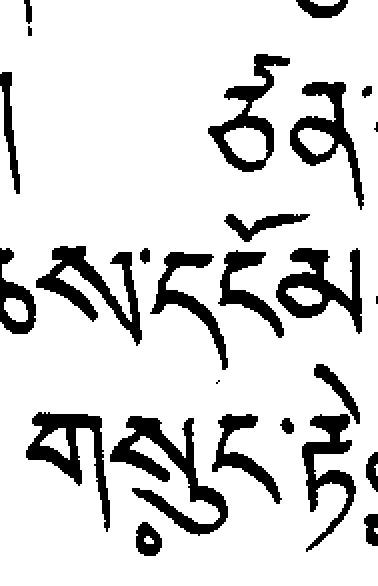 །   ཙན་
ས་དངོམ
གསུང་རྟེ༔